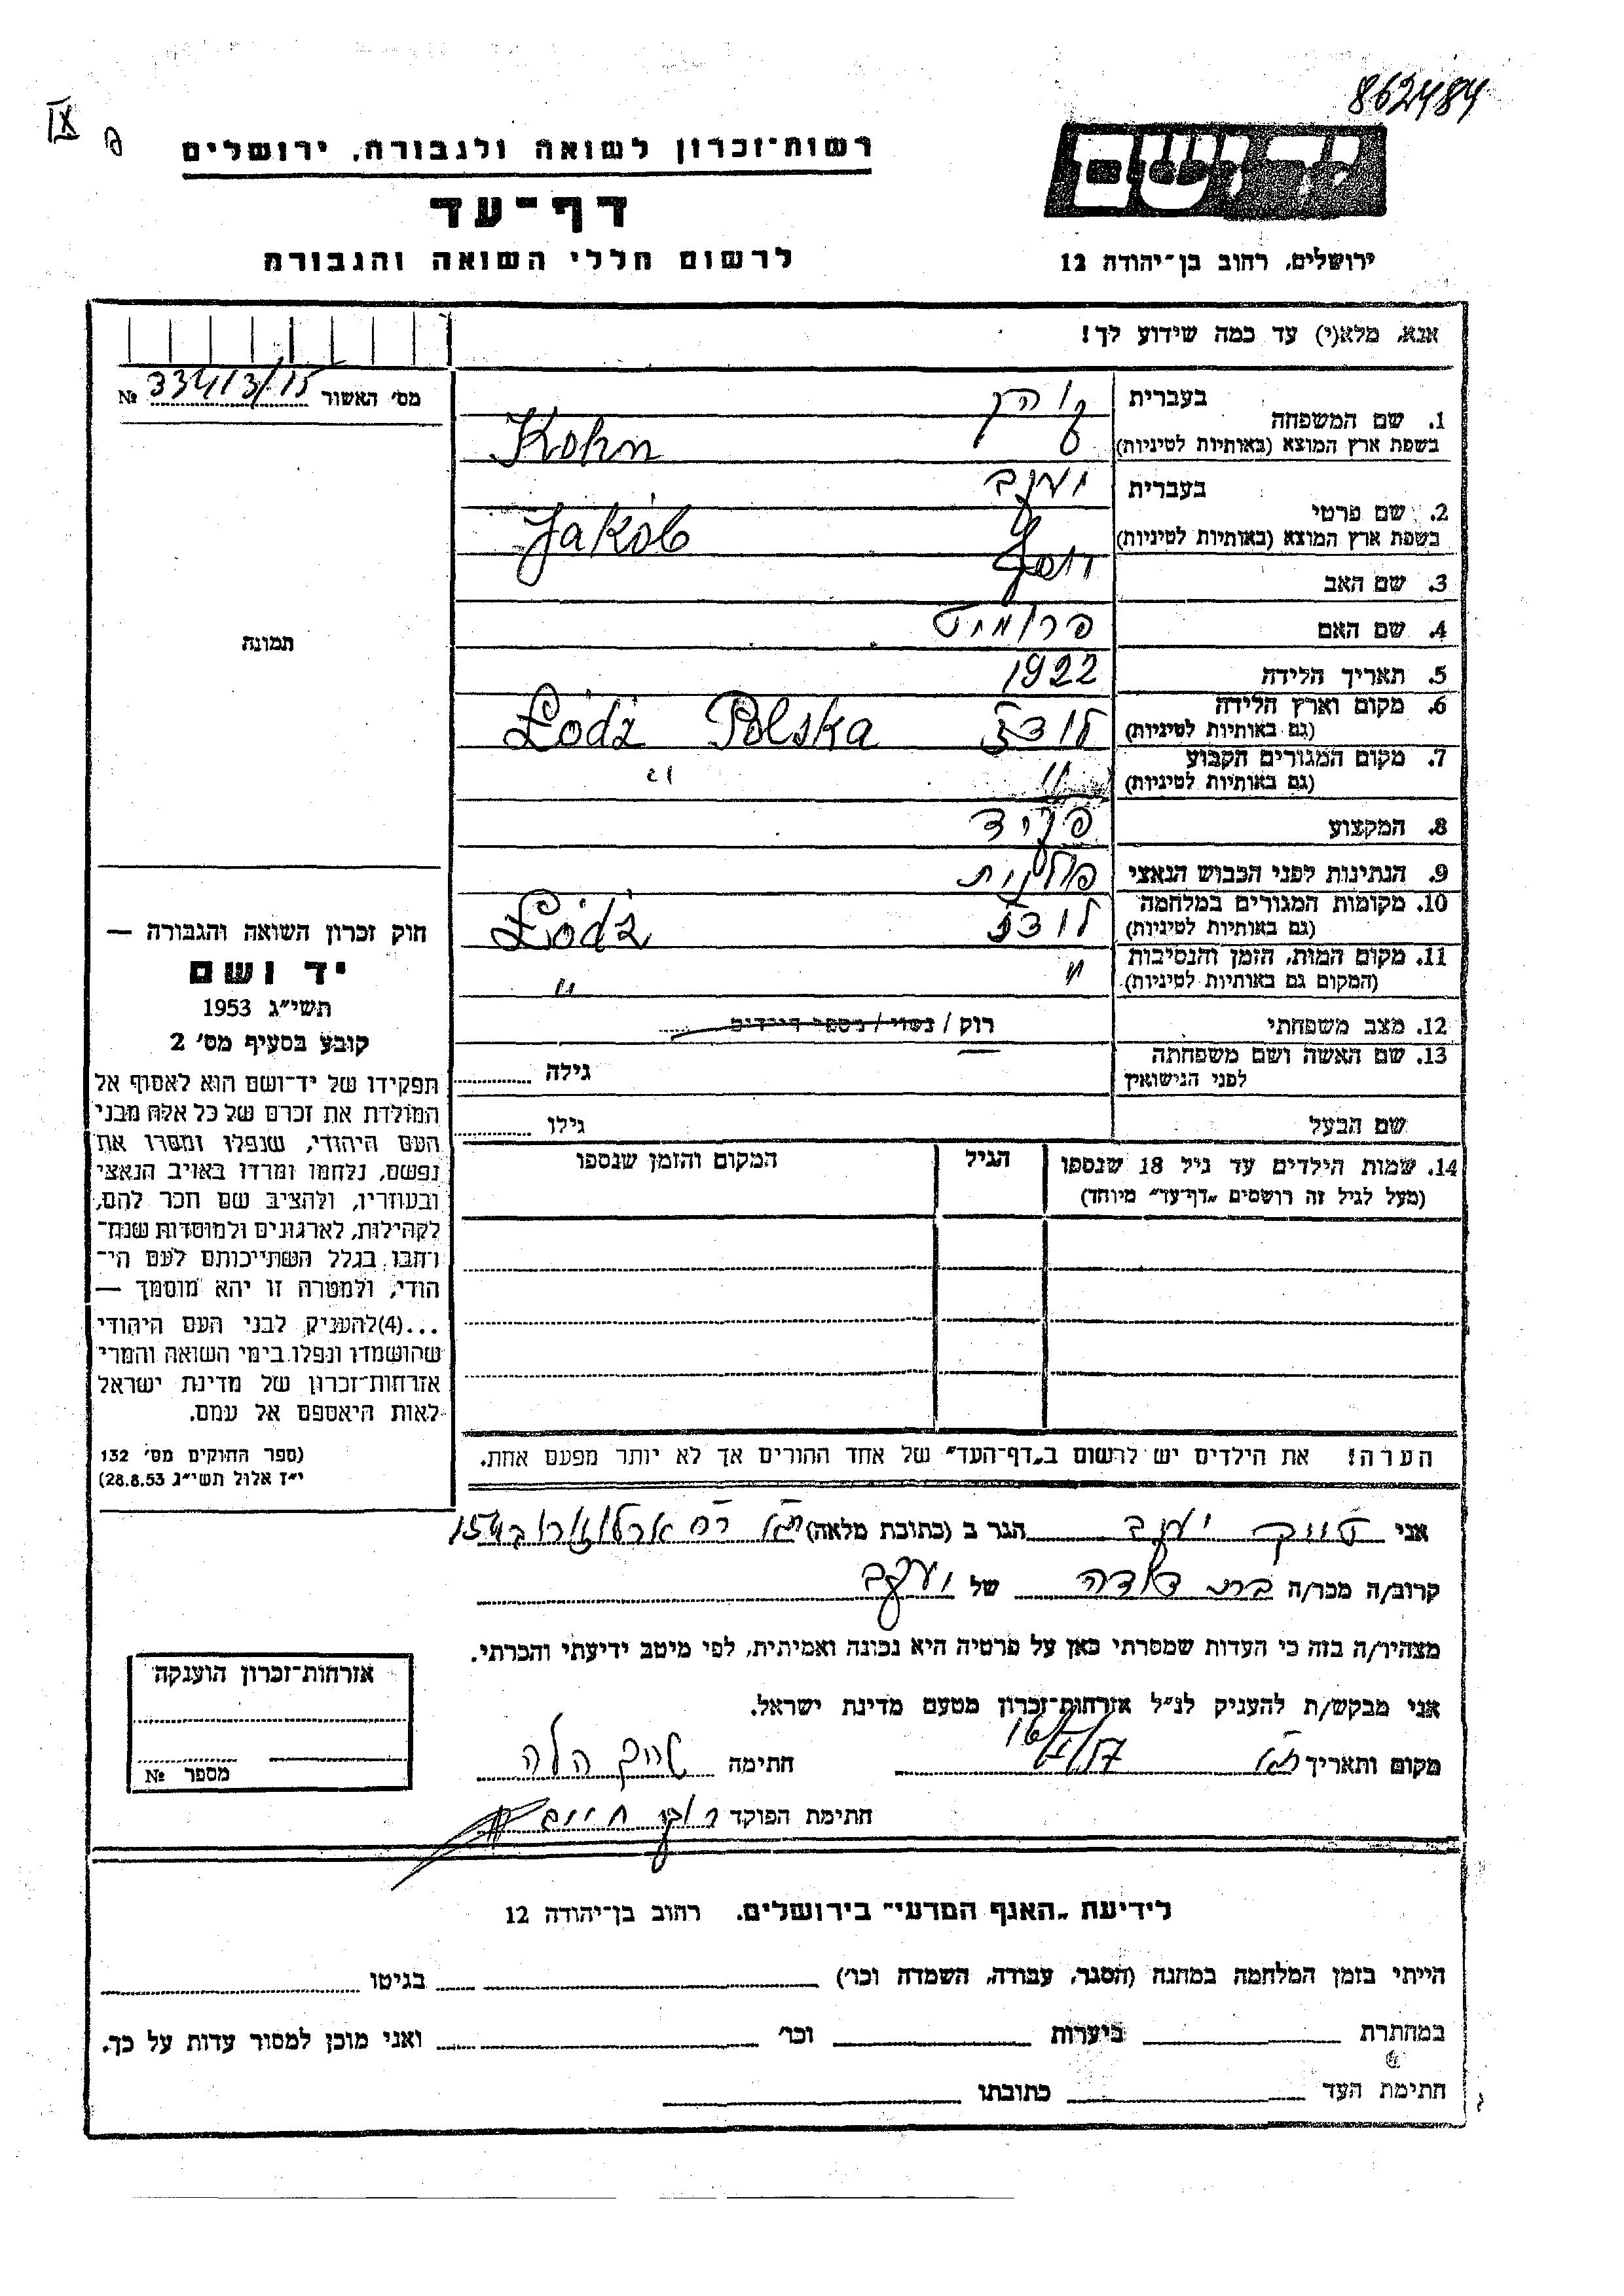 862484
IX
רשות־זכרון לשואה ולגבורה, ירושלים
דף־עד
לרשום חללי השואה והגבורה
יד ושם
ירושלים, רחוב בן־יהודה 12
אנא, מלא(י) עד כמה שידוע לך!
מס' האשור 33413/15 №
תמונה
1. שם המשפחה
בעברית קוהן
בשפת ארץ המוצא (באותיות לטיניות) Kohn
2. שם פרטי
בעברית יעקב
בשפת ארץ המוצא (באותיות לטיניות) Jakób
3. שם האב יוסף
4. שם האם
5. תאריך הלידה 1922
6. מקום וארץ הלידה
(גם באותיות לטיניות) לודז Łódź Polska
7. מקום המגורים הקבוע
(גם באותיות לטיניות) " "
8. המקצוע פקיד
9. הנתינות לפני הכבוש הנאצי פולנית
10. מקומות המגורים במלחמה
(גם באותיות לטיניות) לודז Łódź
11. מקום המות, הזמן והנסיבות
(המקום גם באותיות לטיניות) " "
12. מצב משפחתי רוק / נשוי / מספר הילדים
13. שם האשה ושם משפחתה
לפני הנישואין גילה
שם הבעל גילו
14. שמות הילדים עד גיל 18 שנספו
(מעל לגיל זה רושמים „דף־עד" מיוחד)
הגיל
המקום והזמן שנספו
הערה! את הילדים יש לרשום ב„דף־העד" של אחד ההורים אך לא יותר מפעם אחת.
חוק זכרון השואה והגבורה —
יד ושם
תשי"ג 1953
קובע בסעיף מס' 2
תפקידו של יד־ושם הוא לאסוף אל
המולדת את זכרם של כל אלה מבני
העם היהודי, שנפלו ומסרו את
נפשם, נלחמו ומרדו באויב הנאצי
ובעוזריו, ולהציב שם וזכר להם,
לקהילות, לארגונים ולמוסדות שנח־
רבו בגלל השתייכותם לעם הי־
הודי, ולמטרה זו יהא מוסמך —
...(4)להעניק לבני העם היהודי
שהושמדו ונפלו בימי השואה והמרי
אזרחות־זכרון של מדינת ישראל
לאות היאספם אל עמם.
(ספר החוקים מס' 132
י"ז אלול תשי"ג 28.8.53)
אני יעקב הגר ב (כתובת מלאה) ת"א רח' ארלוזורוב 154
קרוב/ה מכר/ה בת דודה של יעקב
מצהיר/ה בזה כי העדות שמסרתי כאן על פרטיה היא נכונה ואמיתית, לפי מיטב ידיעתי והכרתי.
אני מבקש/ת להעניק לנ"ל אזרחות־זכרון מטעם מדינת ישראל.
מקום ותאריך ת"א חתימה הלה
חתימת הפוקד
אזרחות־זכרון הוענקה
מספר №
לידיעת „האגף המדעי" בירושלים, רחוב בן־יהודה 12
הייתי בזמן המלחמה במחנה (הסגר, עבודה, השמדה וכו') בגיטו
במחתרת ביערות וכו' ואני מוכן למסור עדות על כך.
חתימת העד כתובתו